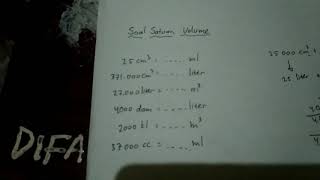 Soal Satuan Volume
25 cm³ = ..... ml
371.000 cm³ = ..... liter
27.000 liter = ..... m³
4000 dam = ..... liter
2000 kl = ..... m³
37.000 cc = ..... ml
35 000 cm³
liter
DIFA